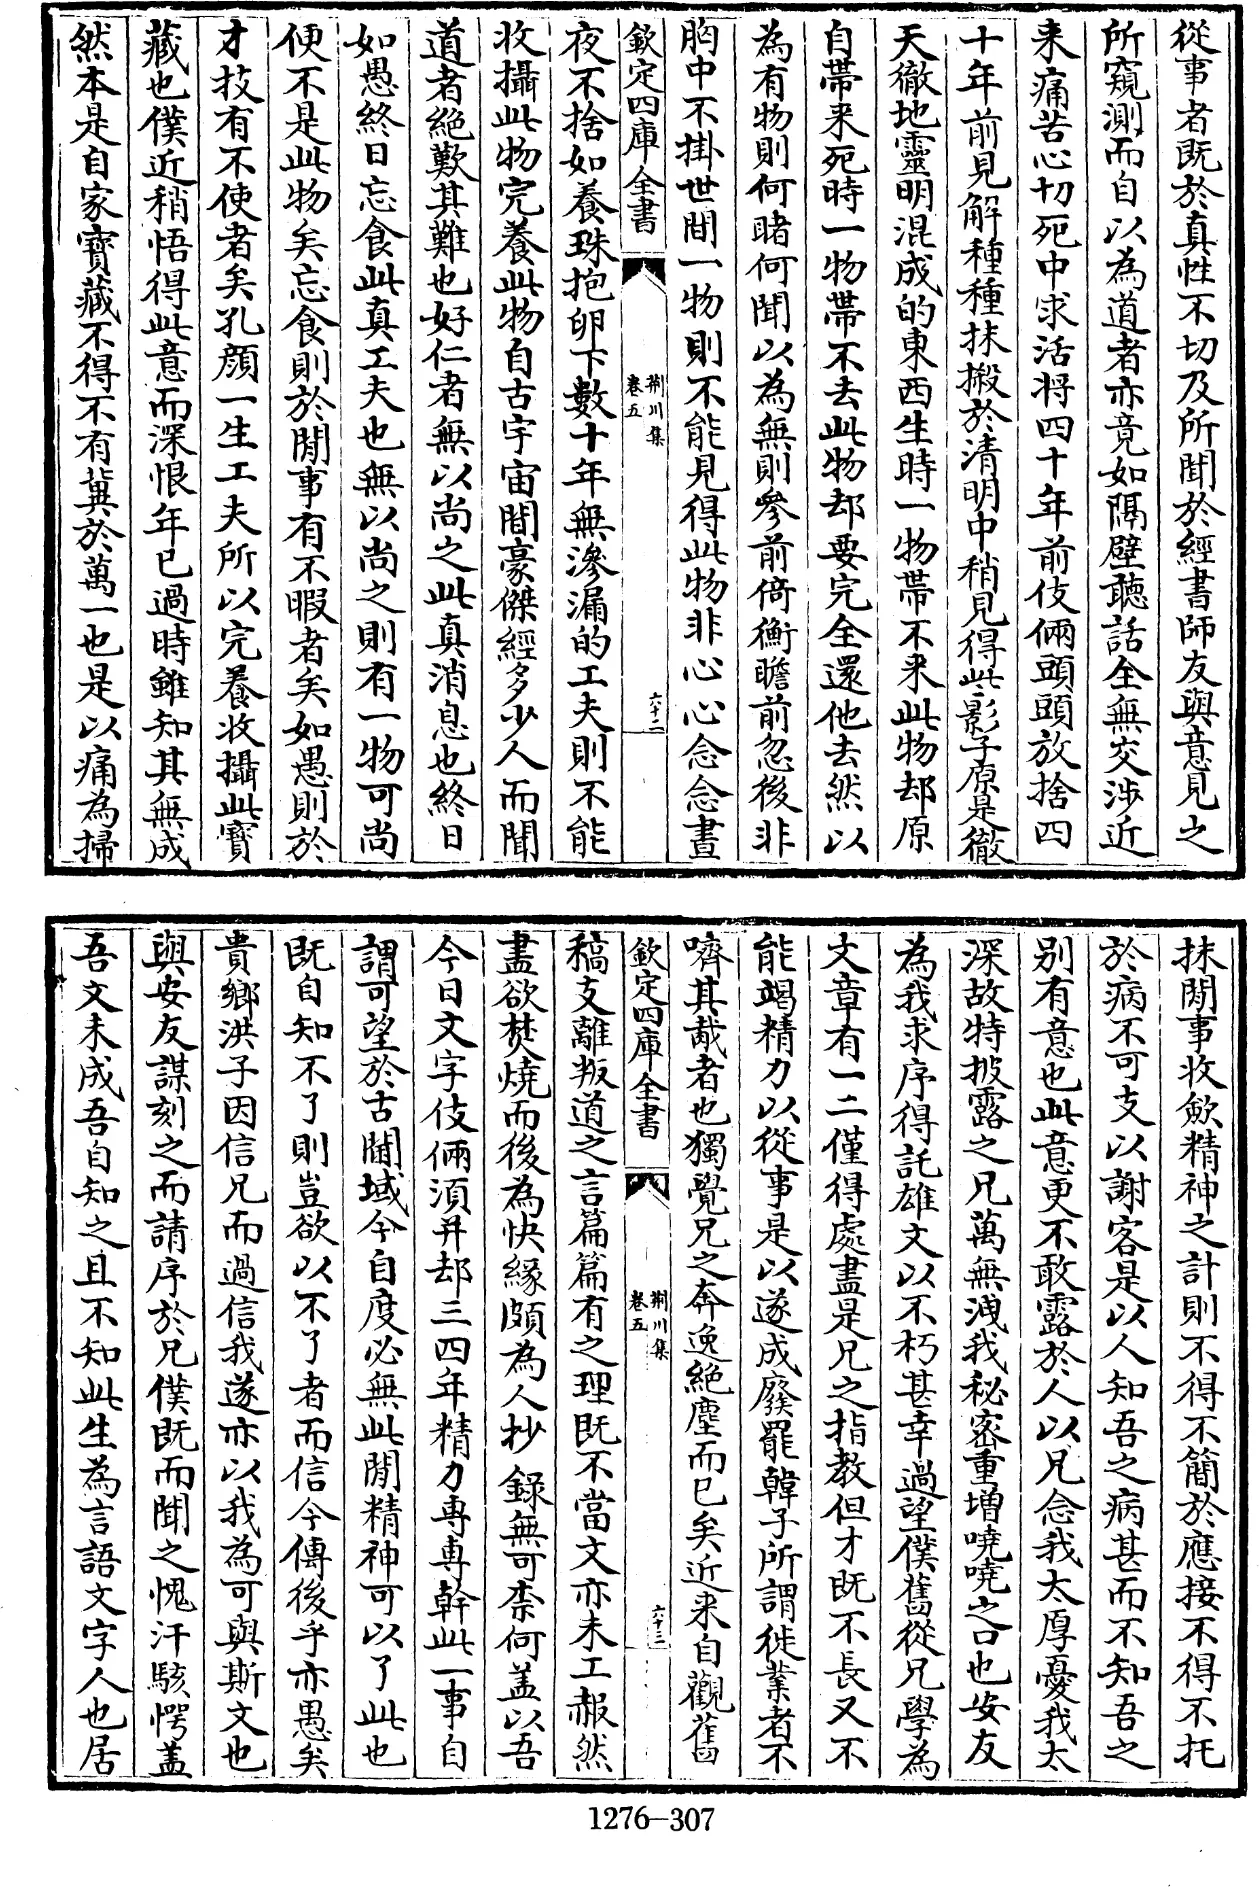 從事者既於真性不切及所聞於經書師友與意見之
所窺測而自以為道者亦竟如隔壁聽話全無交涉近
来痛苦心切死中求活将四十年前伎倆頭頭放捨四
十年前見解種種抹摋於清明中稍見得此影子原是徹
天徹地靈明混成的東西生時一物帶不来此物却原
自帶来死時一物帶不去此物却要完全還他去然以
為有物則何睹何聞以為無則參前倚衡瞻前忽後非
胸中不掛世間一物則不能見得此物非心心念念晝
欽定四庫全書
荆川集
卷五
六十二
夜不捨如養珠抱卵下數十年無滲漏的工夫則不能
收攝此物完養此物自古宇宙間豪傑經多少人而聞
道者絶歎其難也好仁者無以尚之此真消息也終日
如愚終日忘食此真工夫也無以尚之則有一物可尚
便不是此物矣忘食則於閒事有不暇者矣如愚則於
才技有不使者矣孔顔一生工夫所以完養收攝此寳
藏也僕近稍悟得此意而深恨年已過時雖知其無成
然本是自家寳藏不得不有冀於萬一也是以痛為掃
抹閒事收斂精神之計則不得不簡於應接不得不托
於病不可支以謝客是以人知吾之病甚而不知吾之
别有意也此意更不敢露於人以兄念我太厚憂我太
深故特披露之兄萬無洩我秘密重増嘵嘵之口也安友
為我求序得託雄文以不朽甚幸過望僕舊從兄學為
文章有一二僅得處盡是兄之指教但才既不長又不
能竭精力以從事是以遂成廢罷韓子所謂徙業者不
嚌其胾者也獨覺兄之奔逸絶塵而已矣近来自觀舊
欽定四庫全書
荆川集
卷五
六十三
稿支離叛道之言篇篇有之理既不當文亦未工赧然
盡欲焚燒而後為快緣頗為人抄錄無可柰何盖以吾
今日文字伎倆須并却三四年精力専専幹此一事自
謂可望於古閫域今自度必無此閒精神可以了此也
既自知不了則豈欲以不了者而信今傳後乎亦愚矣
貴鄉洪子因信兄而過信我遂亦以我為可與斯文也
與安友謀刻之而請序於兄僕既而聞之愧汗駭愕盖
吾文未成吾自知之且不知此生為言語文字人也居
1276-307